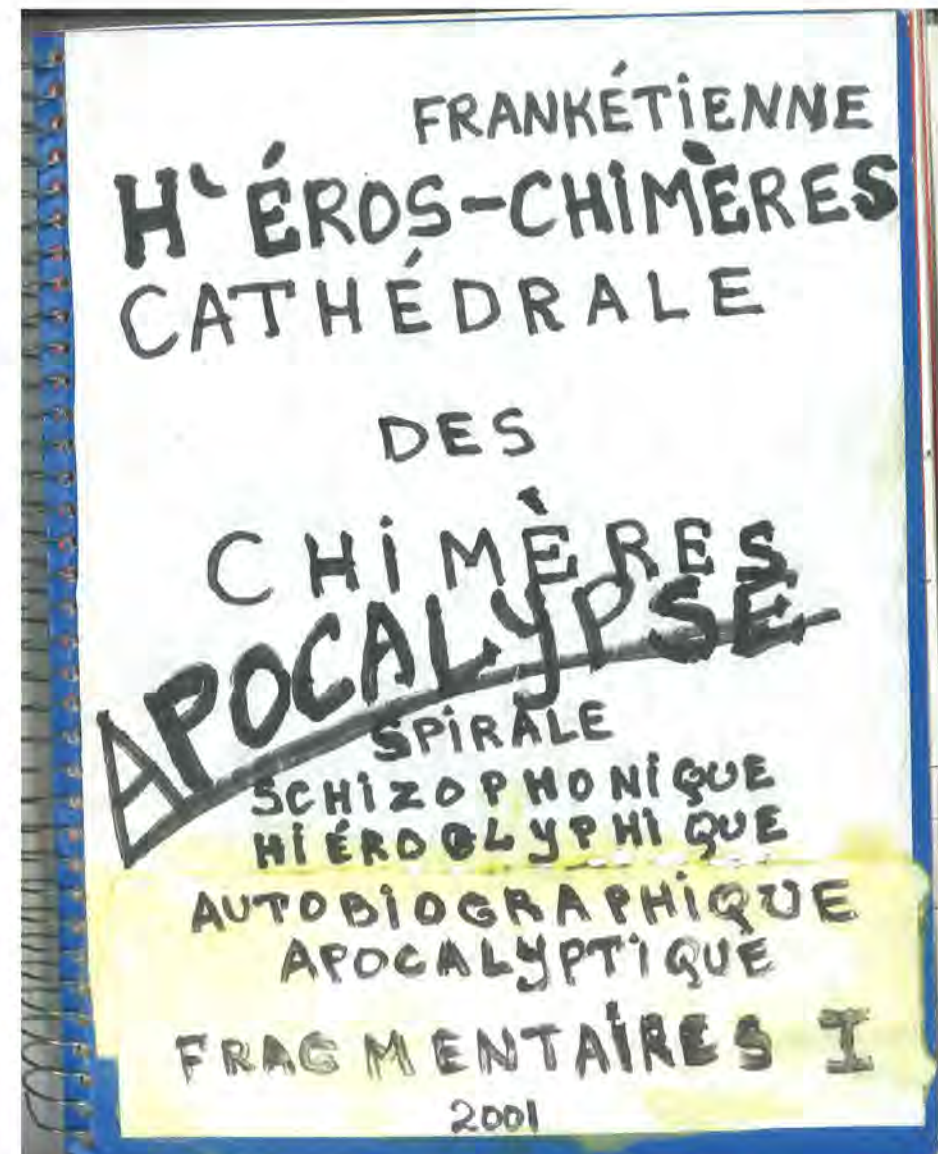 FRANKÉTiENNE
H'ÉROS-CHiMÈRES
CATHÉDRALE
DES
CHiMÈRES
APOCALYPSE
SPiRALE
SCHiZOPHONiQUE
HiÉROGLYPHiQUE
AUTOBiOGRAPHiQUE
APOCALYPTiQUE
FRAGMENTAiRES I
2001